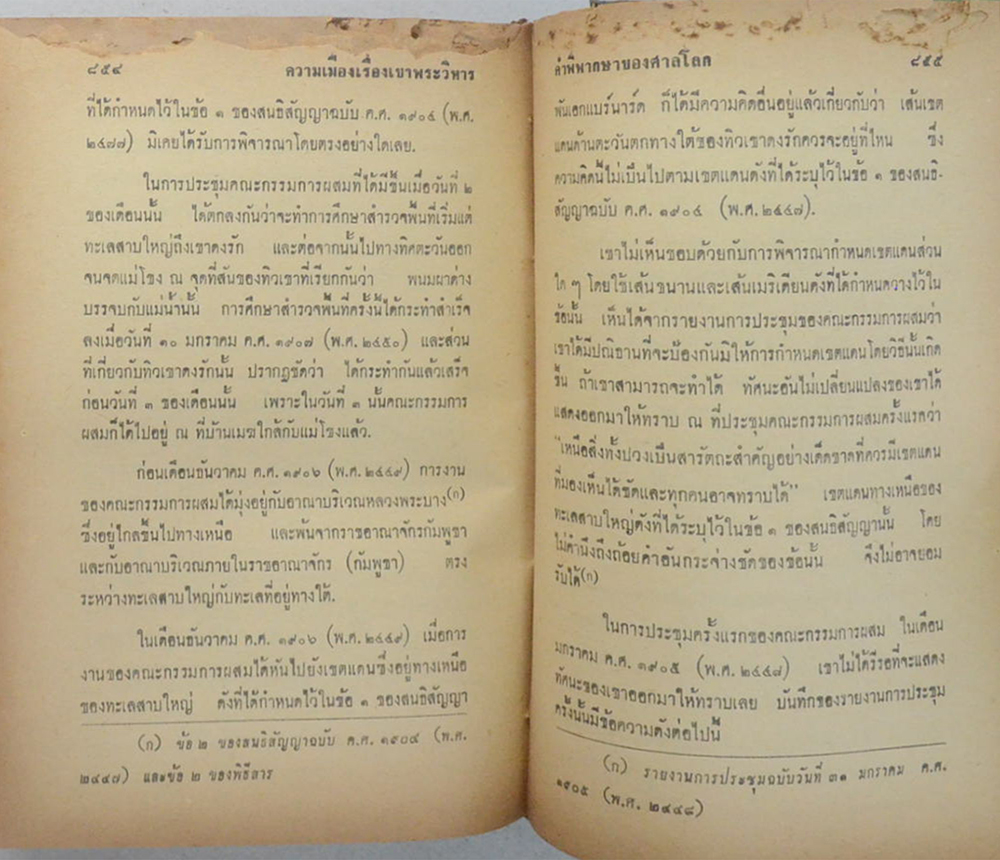 ๘๕๔ ความเมืองเรื่องเขาพระวิหาร
ที่ได้กำหนดไว้ในข้อ ๑ ของสนธิสัญญาฉบับ ค.ศ. ๑๙๐๔ (พ.ศ.
๒๔๔๗) มิเคยได้รับการพิจารณาโดยตรงอย่างใดเลย.
ในการประชุมคณะกรรมการผสมที่ได้มีขึ้นเมื่อวันที่ ๒
ของเดือนนั้น ได้ตกลงกันว่าจะทำการศึกษาสำรวจพื้นที่เริ่มแต่
ทะเลสาบใหญ่ถึงเขาดงรัก และต่อจากนั้นไปทางทิศตะวันออก
จนจดแม่โขง ณ จุดที่สันของทิวเขาที่เรียกกันว่า พนมผาด่าง
บรรจบกับแม่น้ำนั้น การศึกษาสำรวจพื้นที่ครั้งนี้ได้กระทำสำเร็จ
ลงเมื่อวันที่ ๑๐ มกราคม ค.ศ. ๑๙๐๗ (พ.ศ. ๒๔๕๐) และส่วน
ที่เกี่ยวกับทิวเขาดงรักนั้น ปรากฏชัดว่า ได้กระทำกันแล้วเสร็จ
ก่อนวันที่ ๓ ของเดือนนั้น เพราะในวันที่ ๓ นั้นคณะกรรมการ
ผสมก็ได้ไปอยู่ ณ ที่บ้านเมฆใกล้กับแม่โขงแล้ว.
ก่อนเดือนธันวาคม ค.ศ. ๑๙๐๖ (พ.ศ. ๒๔๔๙) การงาน
ของคณะกรรมการผสมได้มุ่งอยู่กับอาณาบริเวณหลวงพระบาง(ก)
ซึ่งอยู่ไกลขึ้นไปทางเหนือ และพ้นจากราชอาณาจักรกัมพูชา
และกับอาณาบริเวณภายในราชอาณาจักร (กัมพูชา) ตรง
ระหว่างทะเลสาบใหญ่กับทะเลที่อยู่ทางใต้.
ในเดือนธันวาคม ค.ศ. ๑๙๐๖ (พ.ศ. ๒๔๔๙) เมื่อการ
งานของคณะกรรมการผสมได้หันไปยังเขตแดนซึ่งอยู่ทางเหนือ
ของทะเลสาบใหญ่ ดังที่ได้กำหนดไว้ในข้อ ๑ ของสนธิสัญญา
(ก) ข้อ ๒ ของสนธิสัญญาฉบับ ค.ศ. ๑๙๐๔ (พ.ศ.
๒๔๔๗) และข้อ ๒ ของพิธีสาร
คำพิพากษาของศาลโลก ๘๕๕
พันเอกแบร์นาร์ด ก็ได้มีความคิดอื่นอยู่แล้วเกี่ยวกับว่า เส้นเขต
แดนด้านตะวันตกทางใต้ของทิวเขาดงรักควรจะอยู่ที่ไหน ซึ่ง
ความคิดนี้ไม่เป็นไปตามเขตแดนดังที่ได้ระบุไว้ในข้อ ๑ ของสนธิ-
สัญญาฉบับ ค.ศ. ๑๙๐๔ (พ.ศ. ๒๔๔๗).
เขาไม่เห็นชอบด้วยกับการพิจารณากำหนดเขตแดนส่วน
ใด ๆ โดยใช้เส้นขนานและเส้นเมริเดียนดังที่ได้กำหนดวางไว้ใน
ข้อนั้น เห็นได้จากรายงานการประชุมของคณะกรรมการผสมว่า
เขาได้มีปณิธานที่จะป้องกันมิให้การกำหนดเขตแดนโดยวิธีนั้นเกิด
ขึ้น ถ้าเขาสามารถจะทำได้ ทัศนะอันไม่เปลี่ยนแปลงของเขาได้
แสดงออกมาให้ทราบ ณ ที่ประชุมคณะกรรมการผสมครั้งแรกว่า
"เหนือสิ่งทั้งปวงเป็นสารัตถะสำคัญอย่างเด็ดขาดที่ควรมีเขตแดน
ที่มองเห็นได้ชัดและทุกคนอาจทราบได้" เขตแดนทางเหนือของ
ทะเลสาบใหญ่ดังที่ได้ระบุไว้ในข้อ ๑ ของสนธิสัญญานั้น โดย
ไม่คำนึงถึงถ้อยคำอันกระจ่างชัดของข้อนั้น จึงไม่อาจยอม
รับได้(ก)
ในการประชุมครั้งแรกของคณะกรรมการผสม ในเดือน
มกราคม ค.ศ. ๑๙๐๕ (พ.ศ. ๒๔๔๘) เขาไม่ได้รีรอที่จะแสดง
ทัศนะของเขาออกมาให้ทราบเลย บันทึกของรายงานการประชุม
ครั้งนั้นมีข้อความดังต่อไปนี้
(ก) รายงานการประชุมฉบับวันที่ ๓๑ มกราคม ค.ศ.
๑๙๐๕ (พ.ศ. ๒๔๔๘)